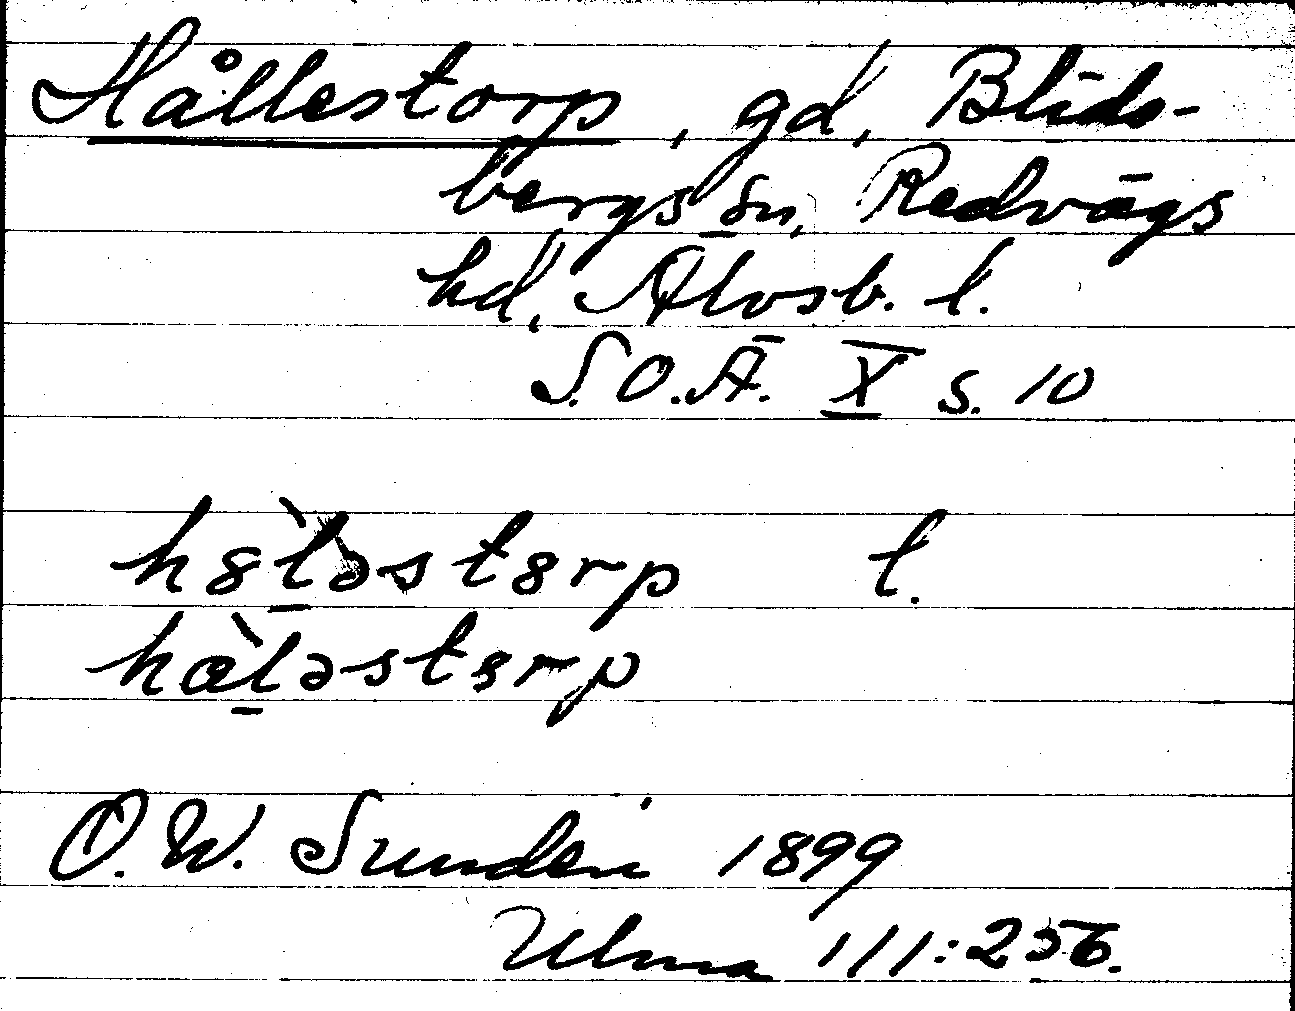 Hållestorp, gd, Blids-
bergs sn, Redvägs
hd, Älvsb. l.
S.O.Ä. X s. 10
h8̀ləst8rp l.
hæ̀ləst8rp
O.W. Sundén 1899
Ulma 111:256.